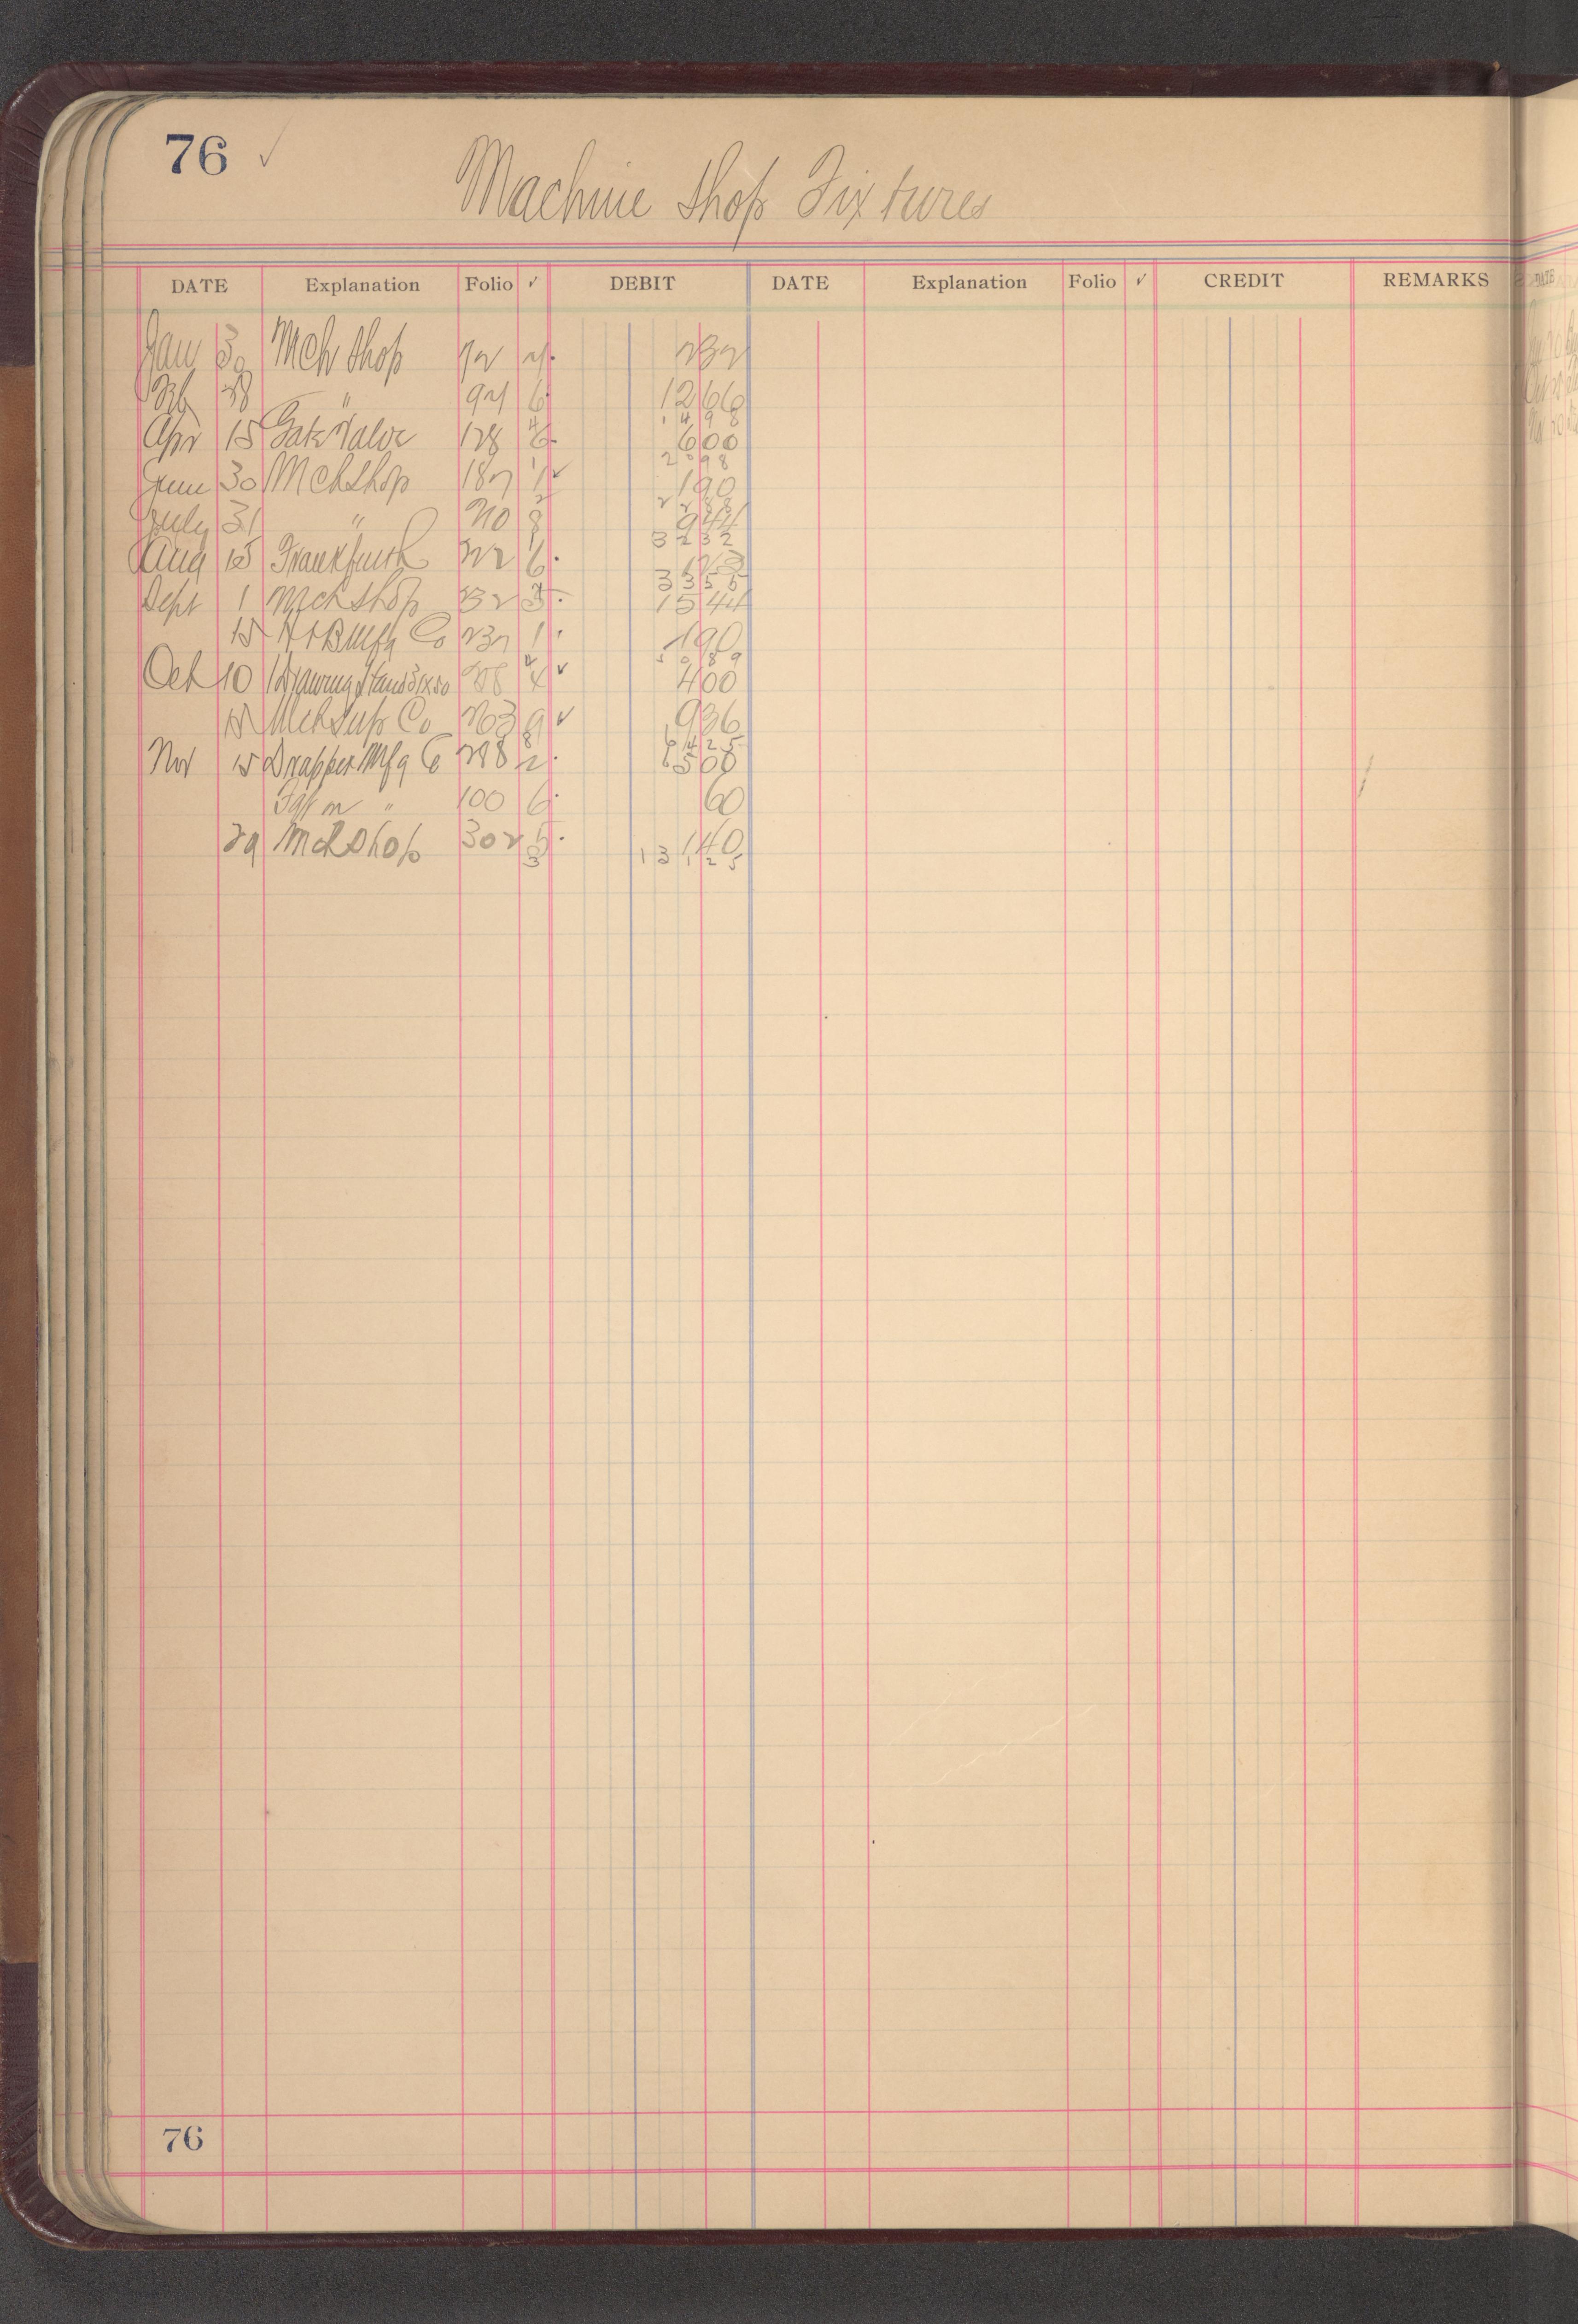 76 ✓
Machine Shop Fixtures
DATE Explanation Folio ✓ DEBIT DATE Explanation Folio ✓ CREDIT REMARKS
Jan 30 Mch Shop 72 232
Feb 28 " 94 6 1266
1498
Apr 15 Gate Valve 128 6 600
2098
June 30 Mch Shop 187 1 ✓ 190
2288
July 31 " 210 8 944
3232
Aug 15 222 6 123
3355
Sept 1 Mch Shop 232 1544
15 H & B Mfg Co 237 1 190
5089
Oct 10 Drawing Stand 4 ✓ 400
15 Mch Sup Co 263 9 ✓ 936
6425
Nov 15 Draper Mfg Co 288 2 6500
" 100 6 60
29 Mch Shop 302 5 140
13125
76